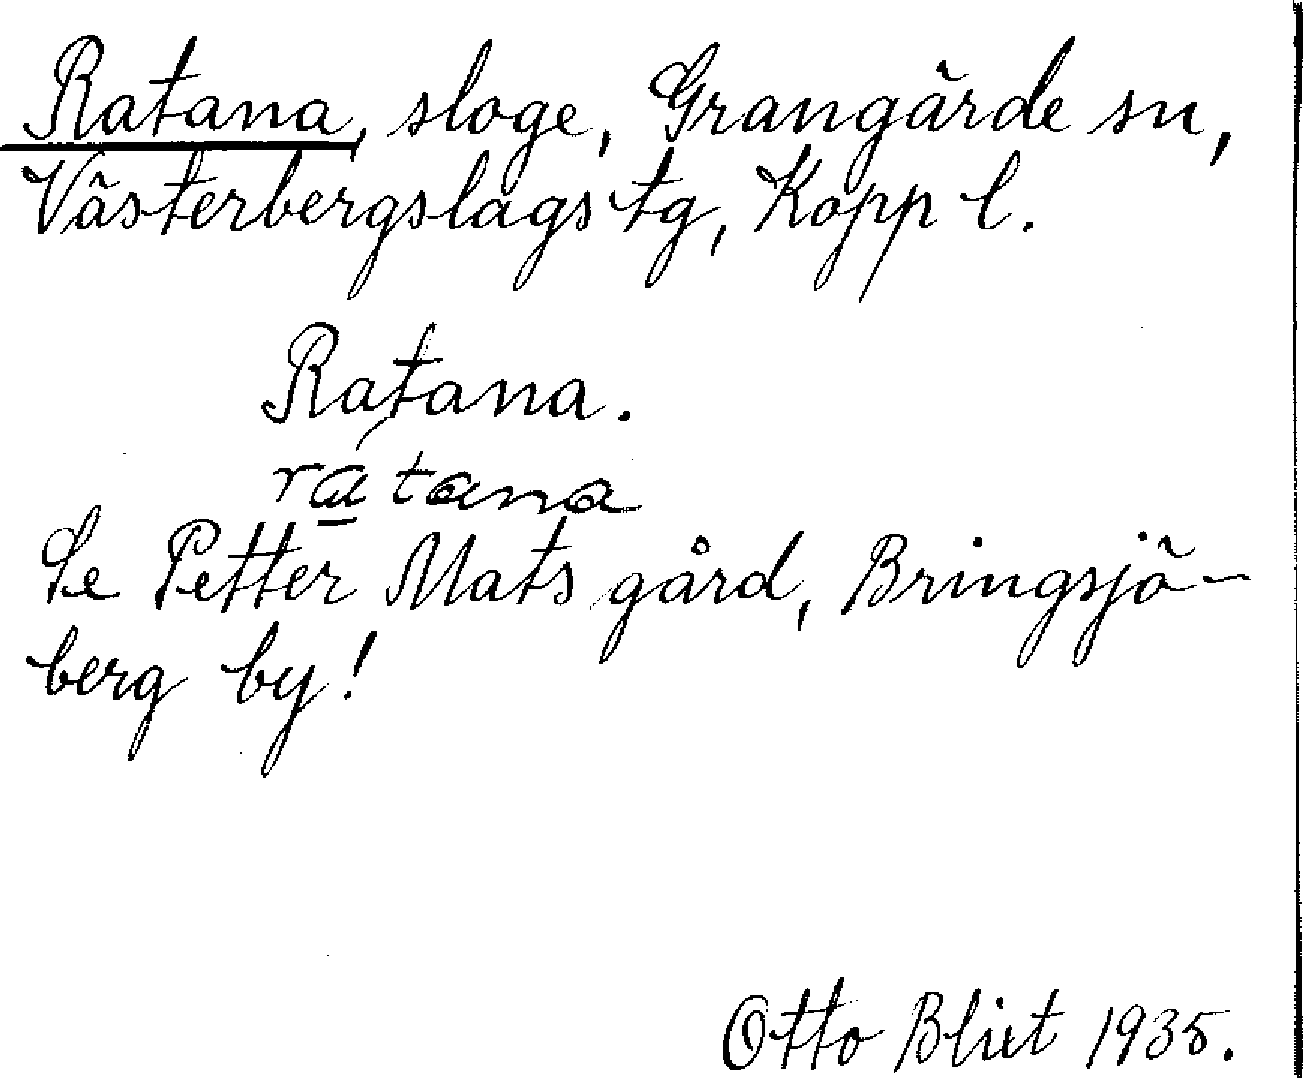 Ratana, sloge, Grangärde sn,
Västerbergslags tg, Kopp l.
Ratana.
rátana
Se Petter Mats gård, Bringsjö-
berg by!
Otto Blixt 1935.